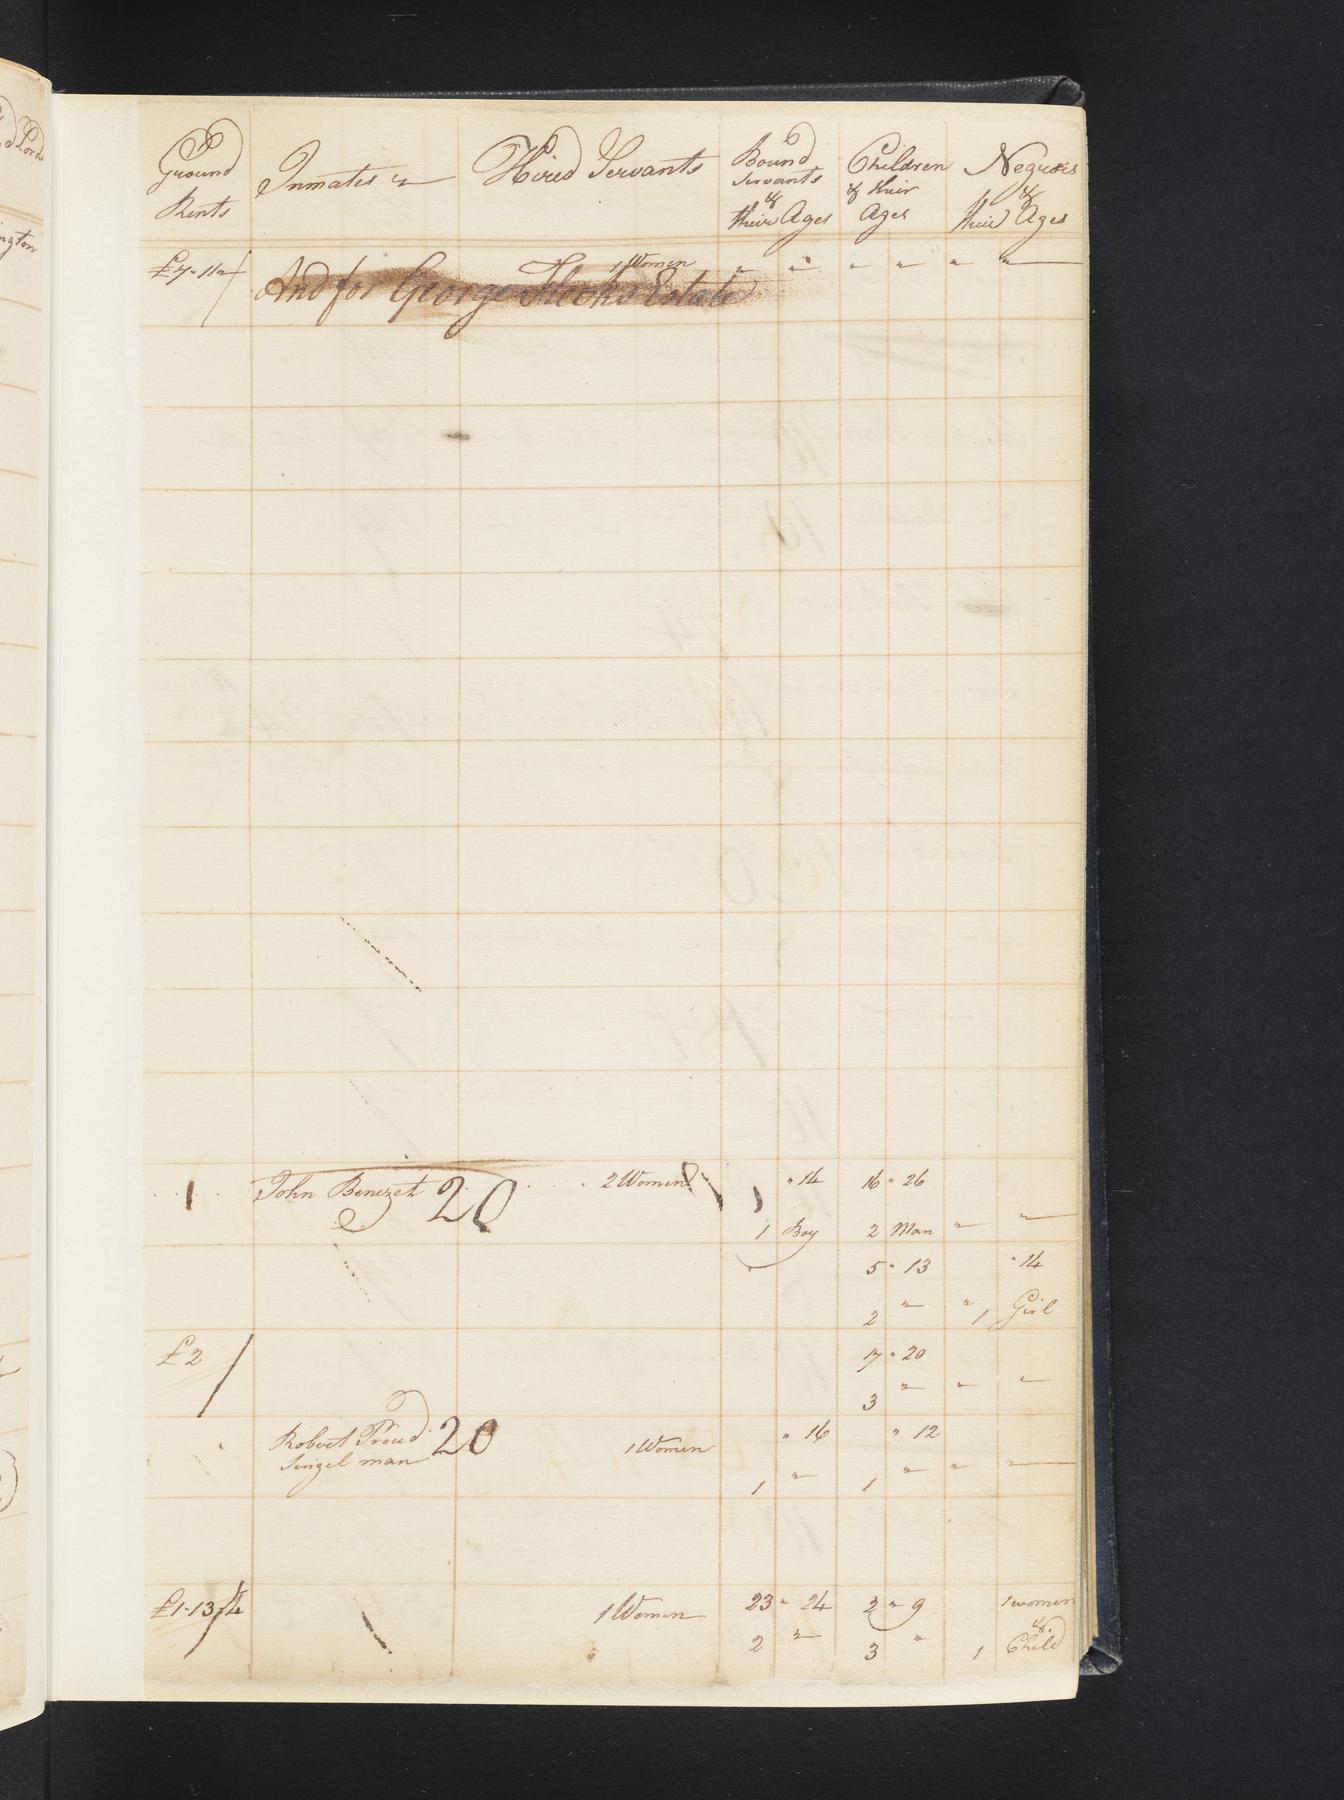 Ground
Rents
Inmates
Hired Servants
Bound
Servants
&
their Ages
Children
& their
Ages
Negroes
&
their Ages
1 Women " " " " " "
And for George Estate
John Benezet 20 2 Women " 14 16 " 26
1 Boy 2 Man " "
5 " 13 " 14
2 " " 1 Girl
£2 17 " 20
3 " " "
Robert Proud 20 1 Women " 16 " 12
Singel man
1 " 1 " " "
£1-13/4 1 Women 23 " 24 2 " 9 1 women
&
2 " 3 " 1 Child